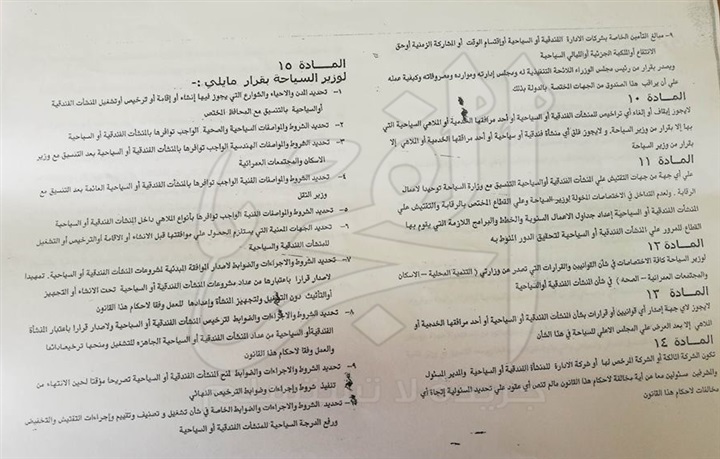 ٩- مبالغ التأمين الخاصة بشركات الادارة الفندقية أو السياحية أوإقتسام الوقت أو المشاركة الزمنية أوحق
الانتفاع أوالملكية الجزئية أوالليالي السياحية
ويصدر بقرار من رئيس مجلس الوزراء اللائحة التنفيذية له ومجلس إدارته وموارده ومصروفاته وكيفية عمله
علي أن يراقب هذا الصندوق من الجهات المختصة بالدولة بذلك
المــــادة ١٠
لايجوز إيقاف أو إلغاء أي تراخيص للمنشآت الفندقية أو السياحية أو أحد مرافقها الخدمية أو الملاهي السياحية التي
بها إلا بقرار من وزير السياحة. و لايجوز غلق أي منشأة فندقية أو سياحية أو أحد مرافقها الخدمية أو الملاهي إلا
بقرار من وزير السياحة
المــــادة ١١
علي أي جهة من جهات التفتيش علي المنشآت الفندقية أوالسياحية التنسيق مع وزارة السياحة توحيدا لاعمال
الرقابة . ولعدم التداخل في الاختصاصات المخولة لوزير السياحة وعلي القطاع المختص بالرقابة والتفتيش علي
المنشآت الفندقية أو السياحية إعداد جداول الاعمال السنوية والخطط والبرامج اللازمة التي يقوم بها
القطاع للمرور علي المنشآت الفندقية أو السياحية لتحقيق الدور المنوط به
المــــادة ١٢
لوزير السياحة كافة الاختصاصات في شأن القوانين والقرارات التي تصدر من وزارتي ( التنمية المحلية – الاسكان
والمجتمعات العمرانية – الصحه ) في شأن المنشآت الفندقية أوالسياحية
المــــادة ١٣
لايجوز لاي جهة إصدار أي قوانيين أو قرارات بشأن المنشآت الفندقية أو السياحية أو أحد مرافقها الخدمية أو
الملاهي إلا بعد العرض علي المجلس الاعلي للسياحة في هذا الشأن
المــــادة ١٤
تكون الشركة المالكة أو الشركة المرخص لها أو شركة الادارة للمنشأة الفندقية أو السياحية والمدير المسئول
والمشرفين مسئولين معا عن أية مخالفة لاحكام هذا القانون مالم تنص أي عقود علي تحديد المسئولية إتجاة أي
مخالفات لاحكام هذا القانون
المــــادة ١٥
لوزير السياحة بقرار مايلي :-
١- تحديد المدن والاحياء والشوارع التي يجوز فيها إنشاء أو إقامة أو ترخيص أوتشغيل المنشآت الفندقية
أوالسياحية بالتنسيق مع المحافظ المختص
٢- تحديد الشروط والمواصفات السياحية والصحية الواجب توافرها بالمنشآت الفندقية أو السياحية
٣- تحديد الشروط والمواصفات الهندسية الواجب توافرها بالمنشآت الفندقية أو السياحية بعد التنسيق مع وزير
الاسكان والمجتمعات العمرانية
٤- تحديد الشروط والمواصفات الفنية الواجب توافرها بالمنشآت الفندقية أو السياحية العائمة بعد التنسيق مع
وزير النقل
٥- تحديد الشروط والمواصفات الفنية الواجب توافرها بأنواع الملاهي داخل المنشآت الفندقية أو السياحية
٦- تحديد الجهات المعنية التي يستلزم الحصول علي موافقتها قبل الانشاء أو الاقامة أوالترخيص أو التشغيل
للمنشآت الفندقية والسياحية
٧- تحديد الشروط والاجراءات والضوابط لاصدار الموافقة المبدئية لمشروعات المنشآت الفندقية أو السياحية. تمهيدا
لاصدار قرارا باعتبارها من عداد مشروعات المنشآت الفندقية أو السياحية تحت الانشاء أو التجهيز
والتأثيث دون التشغيل ولتجهيز المنشأة وإعدادها للعمل وفقا لاحكام هذا القانون
٨- تحديد الشروط والاجراءات والضوابط لترخيص المنشآت الفندقية أو السياحية ولاصدار قرارا باعتبار المنشأة
الفندقية أو السياحية من عداد المنشآت الفندقية أو السياحية الجاهزه للتشغيل ومنحها ترخيصاداما
والعمل وفقا لاحكام هذا القانون
٩- تحديد الشروط والاجراءات والضوابط لمنح المنشآت الفندقية أو السياحية تصريحا مؤقتا لحين الانتهاء من
تنفيذ شروط وإجراءات وضوابط الترخيص النهائي
تحديد الشروط والاجراءات والضوابط الخاصة في شأن تشغيل و تصنيف وتقييم وإجراءات التفتيش والتخفيض
ورفع الدرجة السياحية للمنشآت الفندقية أو السياحية